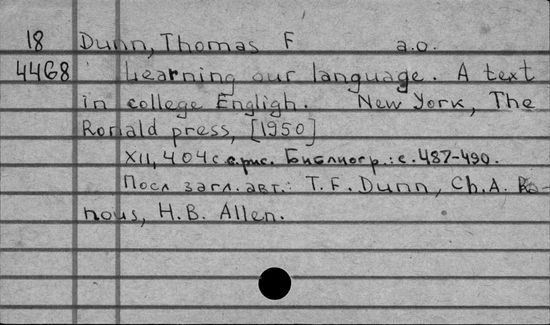 18 Dunn, Thomas F a.o.
4468 Learning our language. A text
in college Engligh. New York, The
Ronald press, [1950]
XII, 404 с с рис. Библиогр.: с. 487-490.
Посл загл. авт.: T. F. Dunn, Ch. A. Ra-
nous, H. B. Allen.